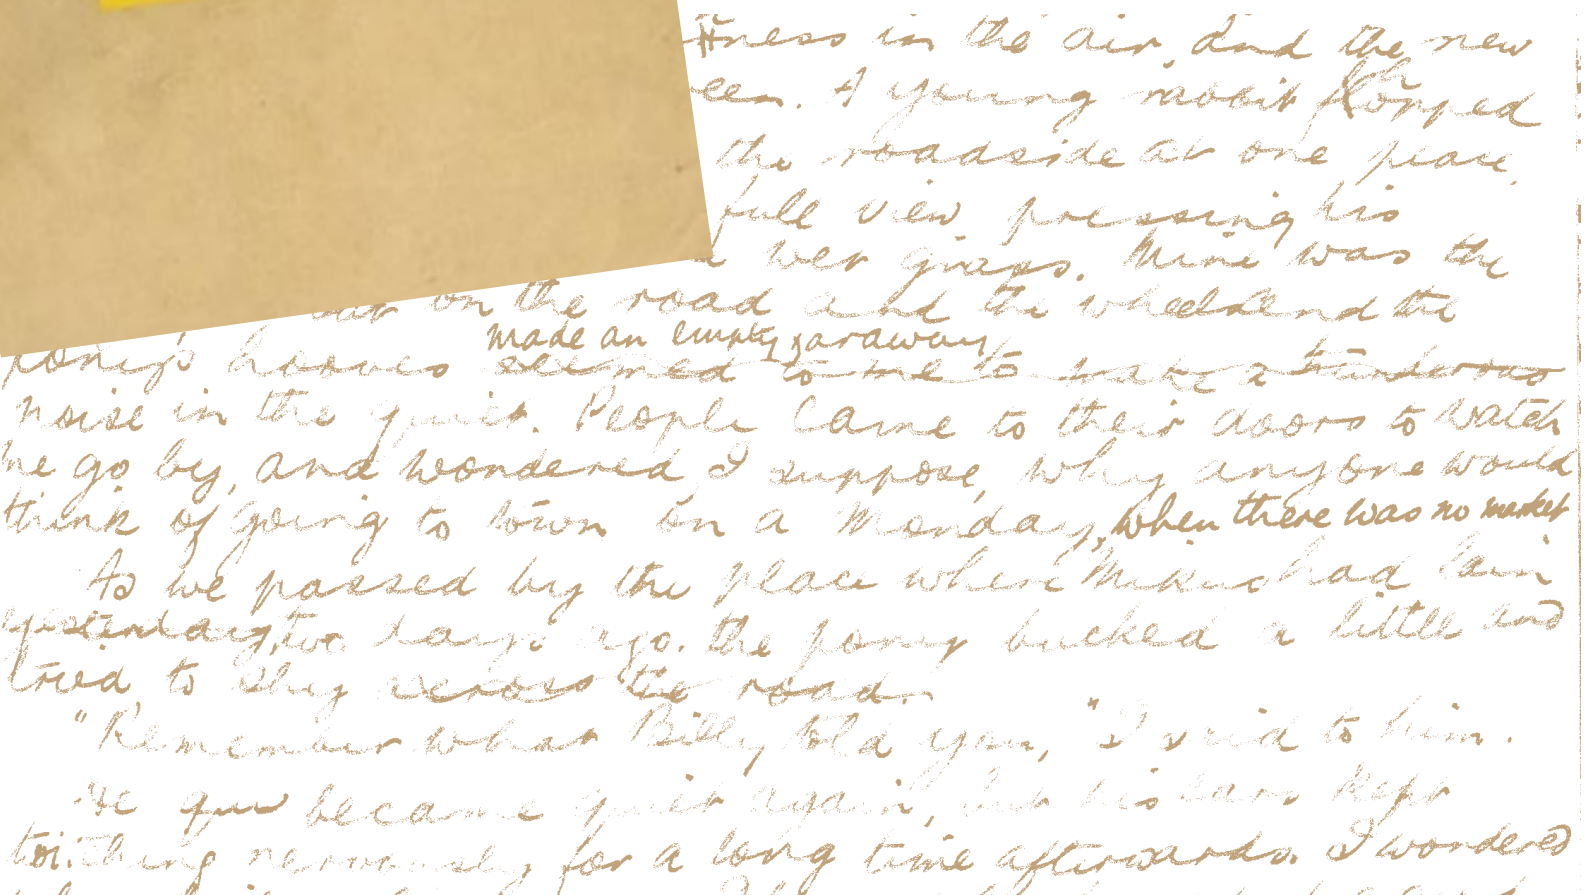 in the air, and the new
A young rabbit flopped
the roadside at one place,
full view pressing his
wet grass. Mine was the
out on the road and the wheels and the
made an empty, faraway
pony's hooves seemed to me to make a thunderous
noise in the quiet. People came to their doors to watch
me go by, and wondered I suppose, why anyone would
think of going to town on a Monday, when there was no market
As we passed by the place where had lain
yesterday, two days ago. the pony bucked a little and
tried to shy across the road.
"Remember what Billy told you," I said to him.
He became quiet again, but his ears kept
twitching nervously for a long time afterwards. I wondered